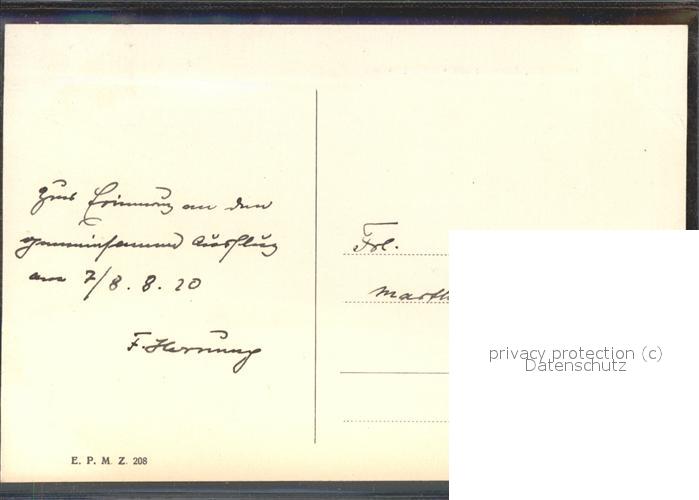 Zur Erinnerung an den
gemeinsamen Ausflug
am 7/8. 8. 20
F. Hornung
Frl.
Marth
privacy protection (c)
Datenschutz
E. P. M. Z. 208